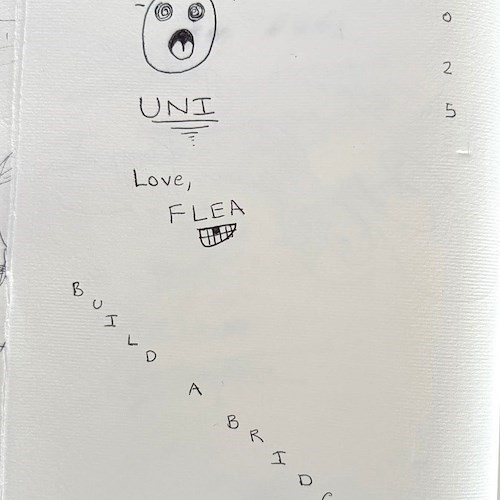 0
2
UNI
5
Love,
FLEA
BUILD
A
BRIDG